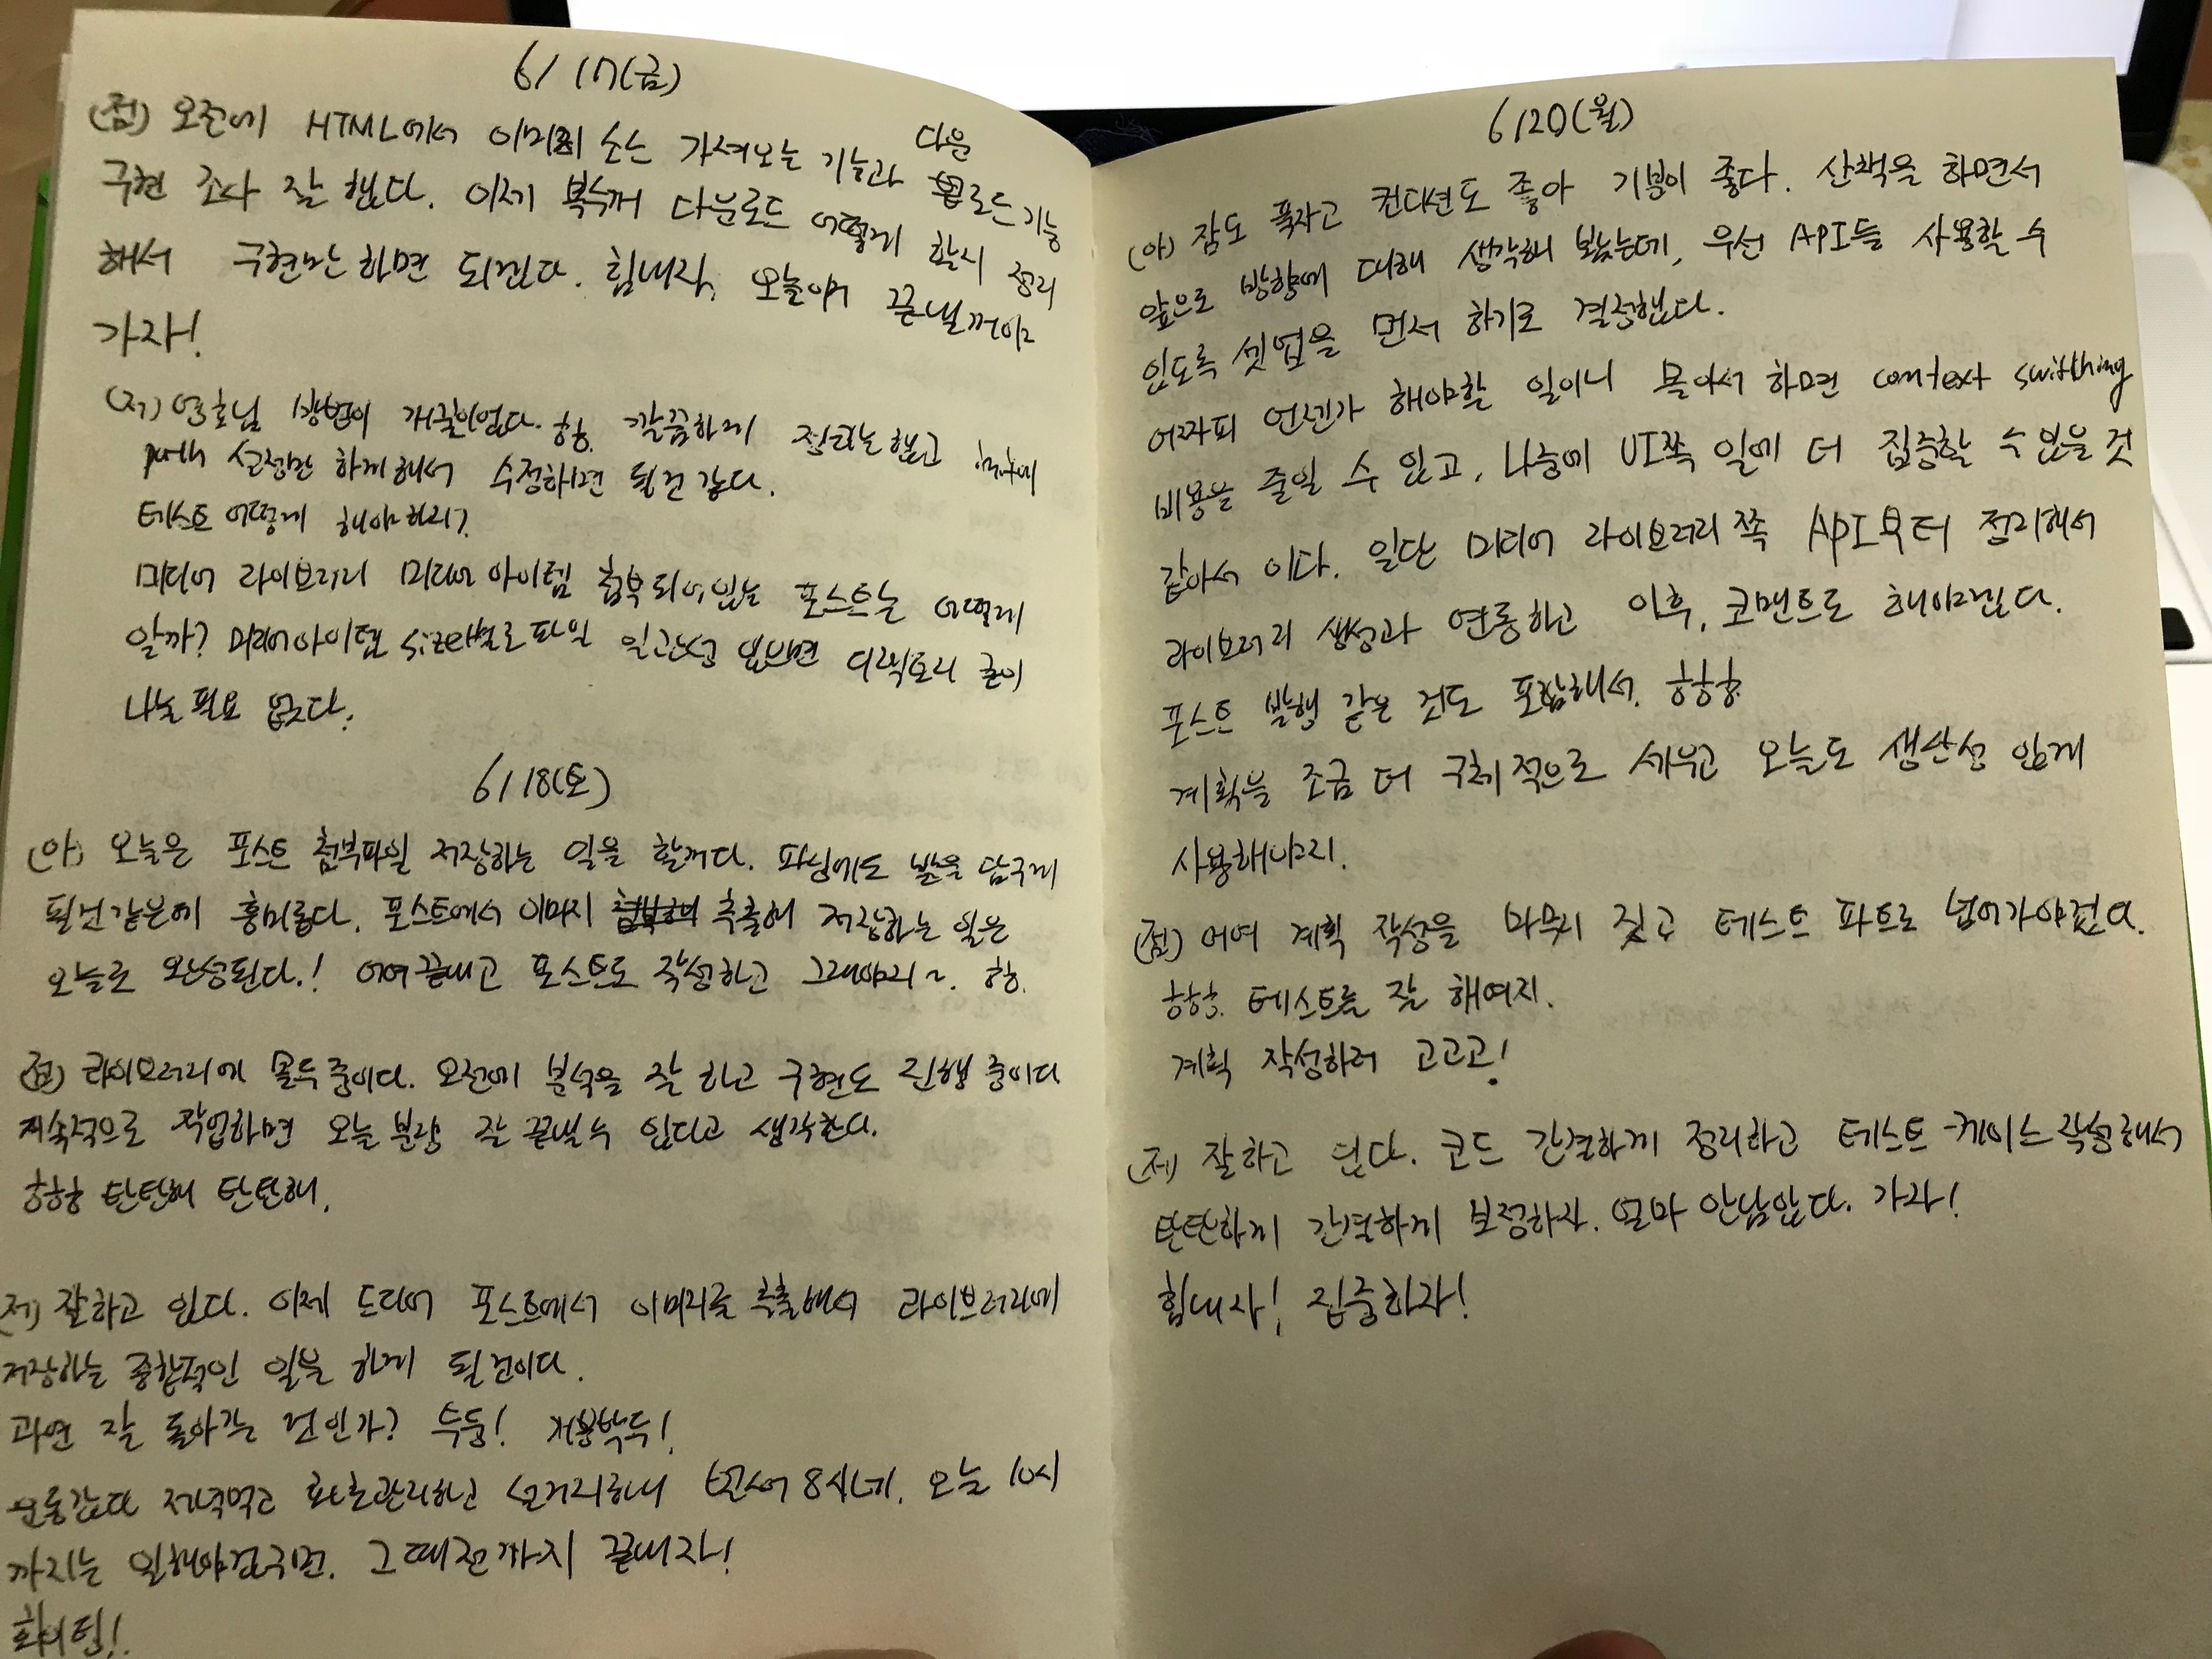 6/17(금)
(점) 오전에 HTML에서 이미지 소스 가져오는 기능과 다운로드 기능
구현 조사 잘 했다. 이제 복수개 다운로드 어떻게 할지 정리
해서 구현만 하면 되겠다. 힘내자, 오늘이 끝낼꺼야
가자!
(저) 영호님 방법이 개꿀이었다. 핳. 깔끔하게 정리는했고
path 설정만 하게해서 수정하면 될건 같다.
테스트 어떻게 해야하지?
미디어 라이브러리 미디어아이템 첨부되어있는 포스트는 어떻게
알까? 미디어아이템 size별로 파일 일관성 있으면 디렉토리 굳이
나눌 필요 없다.
6/18(토)
(아) 오늘은 포스트 첨부파일 저장하는 일을 할꺼다. 파싱에도 발을 담구게
될건같은데 흥미롭다. 포스트에서 이미지 추출해 저장하는 일은
오늘로 완성된다.! 어여끝내고 포스트도 작성하고 그래야지~. 핳.
(점) 라이브러리에 몰두중이다. 오전에 분석을 잘 하고 구현도 진행 중이다
지속적으로 작업하면 오늘 분량 잘 끝낼수 있다고 생각한다.
핳핳핳 탄탄해 탄탄해.
(저) 잘하고 있다. 이제 드디어 포스트에서 이미지를 추출해서 라이브러리에
저장하는 종합적인 일을 하게 될건이다.
과연 잘 돌아가는 건인가? 두둥! 개봉박두!
운동갔다 저녁먹고 하고 설거지하니 벌써 8시네. 오늘 10시
까지는 일해야겠구먼. 그때전까지 끝내자!
화이팅!
6/20(월)
(아) 잠도 푹자고 컨디션도 좋아 기분이 좋다. 산책을 하면서
앞으로 방향에 대해 생각해 봤는데, 우선 API들 사용할 수
있도록 셋업을 먼저 하기로 결정했다.
어짜피 언젠가 해야할 일이니 몰아서 하면 context swithing
비용을 줄일 수 있고, 나중에 UI쪽 일에 더 집중할 수 있을 것
같아서 이다. 일단 미디어 라이브러리 쪽 API부터 정리해서
라이브러리 생성과 연동하고 이후, 코멘트로 해야겠다.
포스트 발행 같은 것도 포함해서. 핳핳핳
계획을 조금 더 구체적으로 세우고 오늘도 생산성 있게
사용해야지.
(점) 어여 계획 작성을 마무리 짓고 테스트 파트로 넘어가야겠다.
핳핳핳. 테스트를 잘 해여지.
계획 작성하러 고고고!
(저) 잘하고 있다. 코드 간결하게 정리하고 테스트 케이스 작성해서
탄탄하게 간결하게 보정하자. 얼마 안남았다. 가자!
힘내자! 집중하자!